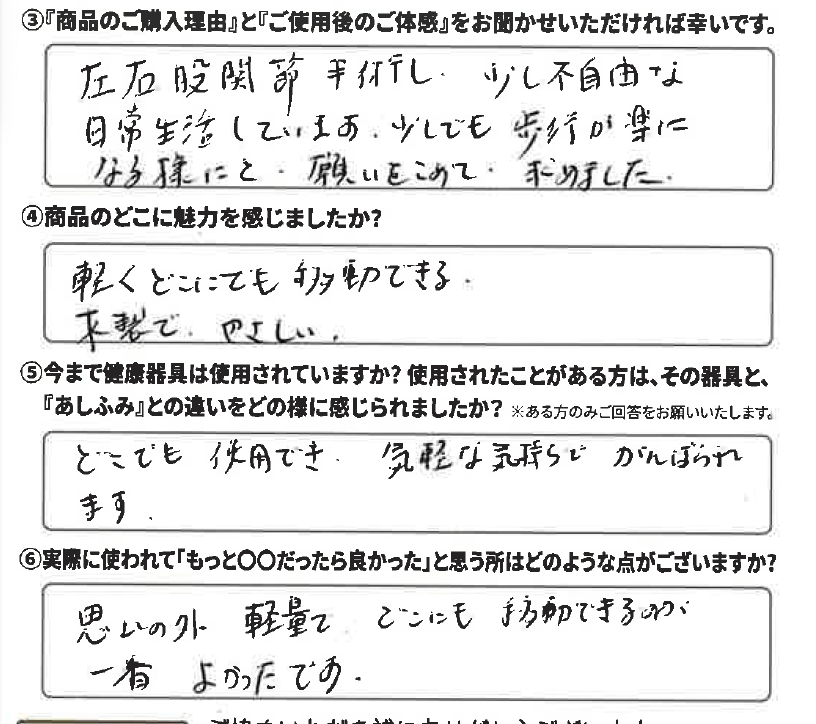 ③『商品のご購入理由』と『ご使用後のご体感』をお聞かせいただければ幸いです。
左右股関節手術し、少し不自由な
日常生活しています。少しでも歩行が楽に
なる様にと、願いをこめて、求めました。
④商品のどこに魅力を感じましたか?
軽くどこにでも移動できる。
木製で、やさしい。
⑤今まで健康器具は使用されていますか? 使用されたことがある方は、その器具と、
『あしふみ』との違いをどの様に感じられましたか? ※ある方のみご回答をお願いいたします。
どこでも使用でき、気軽な気持ちでがんばられ
ます。
⑥実際に使われて「もっと〇〇だったら良かった」と思う所はどのような点がございますか?
思いの外軽量で どこにも移動できるのが
一番よかったです。